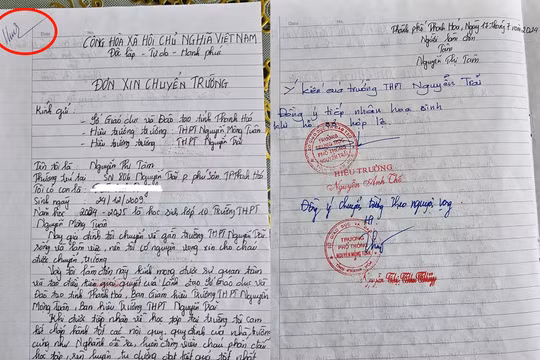 CỘNG HÒA XÃ HỘI CHỦ NGHĨA VIỆT NAM
Độc lập - Tự do - Hạnh phúc
ĐƠN XIN CHUYỂN TRƯỜNG
Kính gửi
- Sở Giáo dục và Đào tạo tỉnh Thanh Hoá
- Hiệu trưởng trường THPT Nguyễn Mộng Tuân
- Hiệu trưởng trường THPT Nguyễn Trãi
Tên tôi là Nguyễn Thị Tám
Thường trú tại SN 80b Nguyễn Trãi P. Phú Sơn TP Thanh Hoá
Tôi có con là
Sinh ngày 24/12/2009
Năm học 2024 - 2025 là học sinh lớp 10 Trường THPT
Nguyễn Mộng Tuân
Nay gia đình tôi chuyển về gần trường THPT Nguyễn Trãi
sống và làm việc nên tôi có nguyện vọng xin cho cháu
được chuyển trường.
Vậy tôi làm đơn này kính mong được sự quan tâm
và tạo điều kiện giải quyết của Lãnh đạo Sở Giáo dục và
Đào tạo tỉnh Thanh Hoá, Ban Giám hiệu Trường THPT Nguyễn
Mộng Tuân, Ban hiệu Trường THPT Nguyễn Trãi
Khi được tiếp nhận về học tập tại trường tôi cam
kết chấp hành tốt các nội quy, quy định của nhà trường
cũng như Nghành đề ra, luôn tâm cháu phấn đấu
học tập, rèn luyện tu dưỡng đạt kết quả tốt nhất
Thành phố Thanh Hoá, Ngày 17 tháng 7 năm 2024
Người làm đơn
Tám
Nguyễn Thị Tám
Ý kiến của trường THPT Nguyễn Trãi
Đồng ý tiếp nhận học sinh
hồ sơ hợp lệ
HIỆU TRƯỞNG
Nguyễn Anh Thế
Đồng ý chuyển trường theo nguyện vọng
HT
TRƯỜNG
PHỔ THÔNG
NGUYỄN MỘNG TUÂN